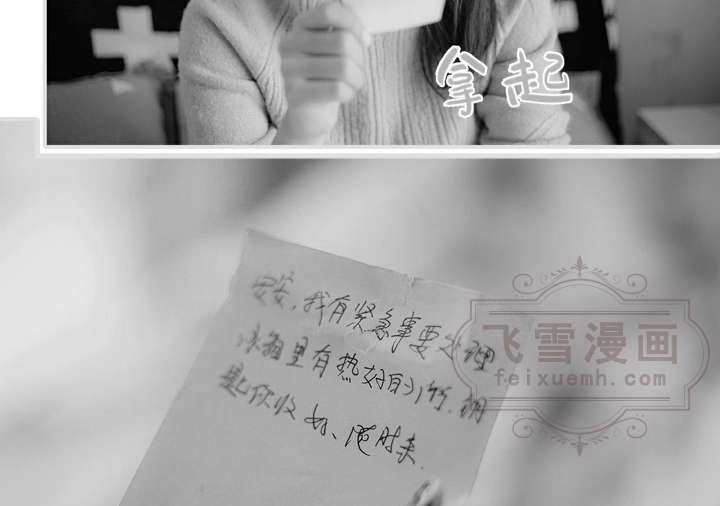 拿起
安安,我有紧急事要处理
冰箱里有热好的汤,钥
匙你收好、随时来.
飞雪漫画
feixuemh.com